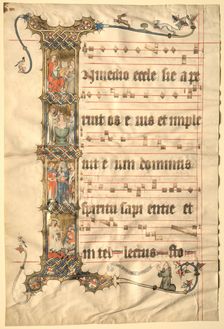 In medio eccle sie ape
ruit os e ius et imple
uit e um dominus
spiritu sapi entie et
in tel lectus sto